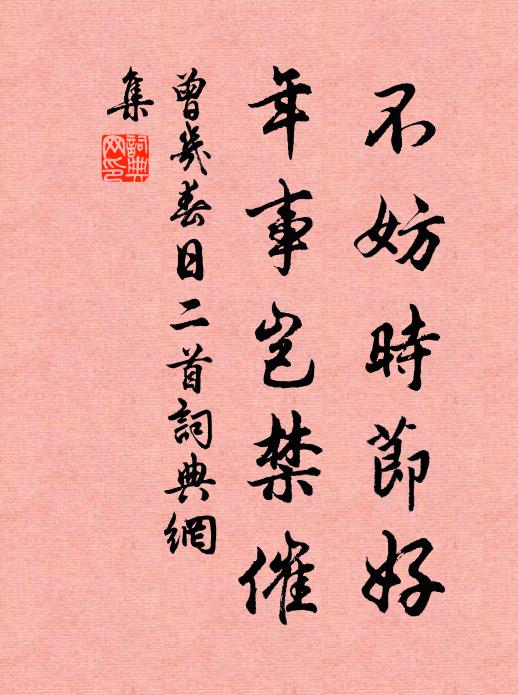 不妨時節好
年事豈禁催
曾幾春日二首詞典網
集
詞典
网印